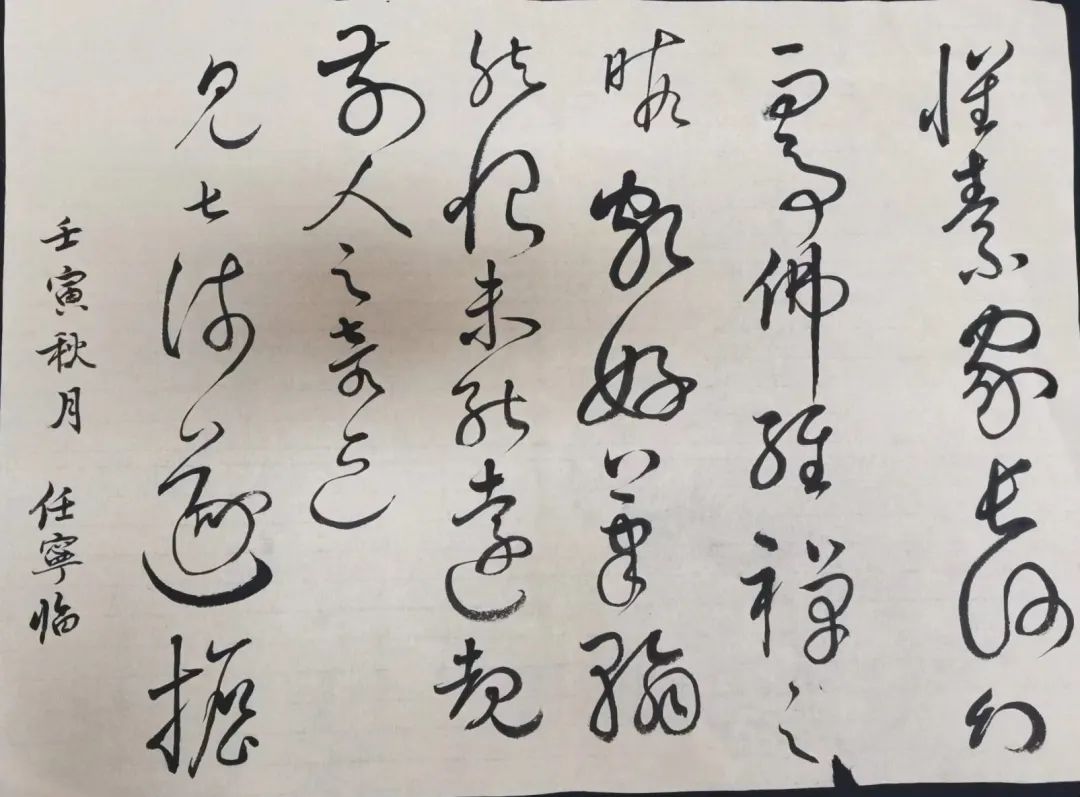 懷素家長沙幼
而事佛經禪之
暇頗好筆翰
然恨未能遠覩
前人之奇迹
見甚淺遂擔
壬寅秋月 任寧临